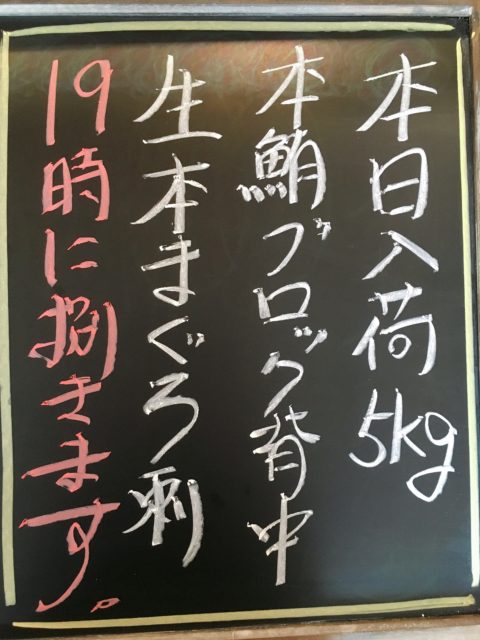 本日入荷5kg
本鮪ブロック背中
生本まぐろ刺
19時に捌きます。